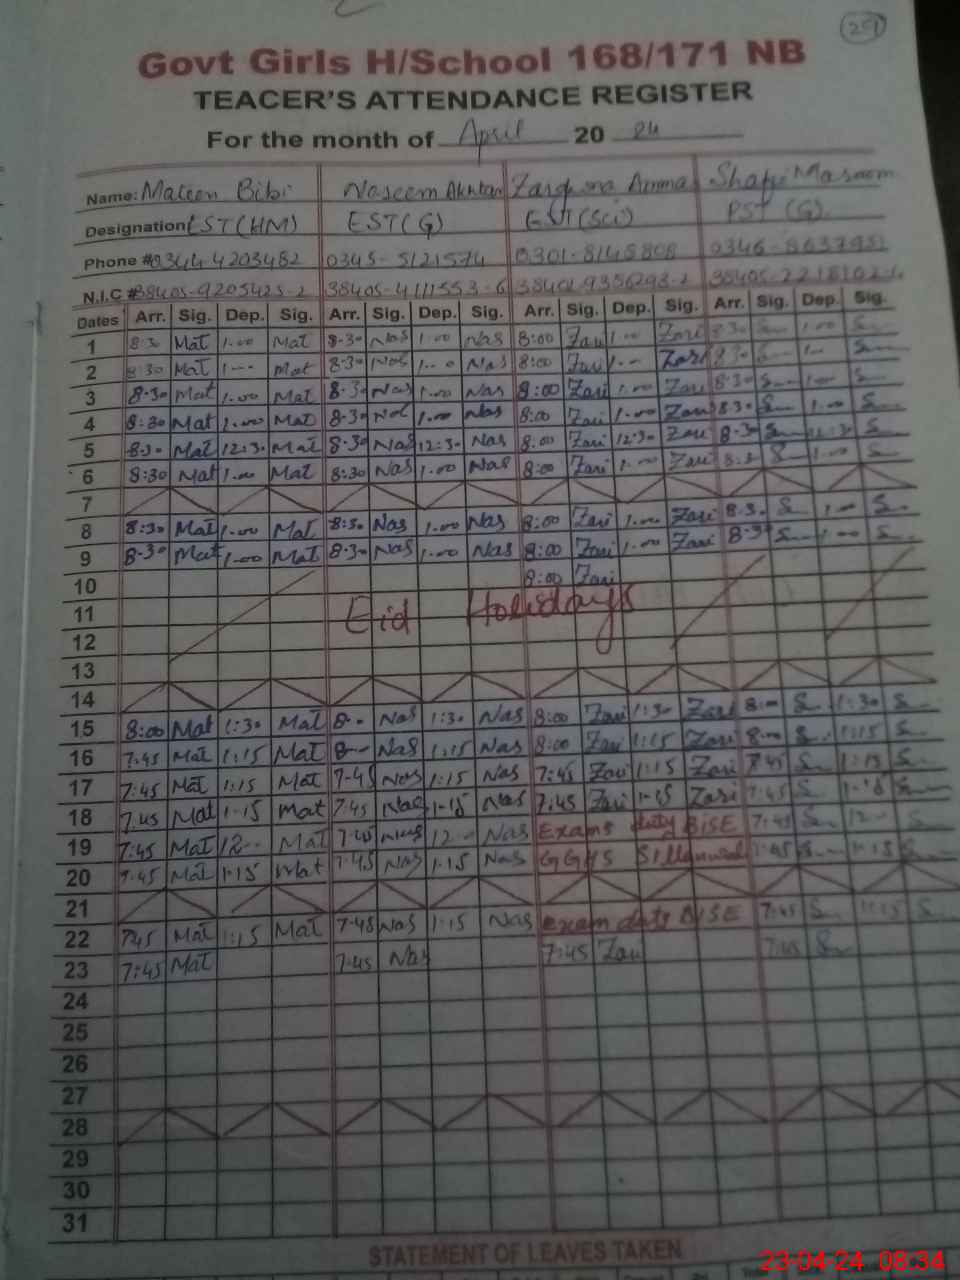 29
Govt Girls H/School 168/171 NB
TEACER'S ATTENDANCE REGISTER
For the month of April 20 24
Name: Mateen Bibi Naseem Akhtar Amna Shafi Masoom
Designation EST(HM) EST(G) EST(Sci) PST (G)
Phone # 0344 4203482 0345-5121574 0301-8145808
N.I.C # 38405-9205425-2 38405-4111553-6
Dates Arr. Sig. Dep. Sig. Arr. Sig. Dep. Sig. Arr. Sig. Dep. Sig. Arr. Sig. Dep. Sig.
1 8:30 Mat 1-00 Mat 8-30 Nas 1-00 Nas 8:00 Zari 1-00 Zari 8-30 S 1-00 S
2 8:30 Mat 1-- Mat 8-30 Nas 1-0 Nas 8:00 Zari 1-- Zari 8-30 S 1-- S
3 8-30 Mat 1-00 Mat 8-30 Nas 1-00 Nas 8:00 Zari 1-00 Zari 8-30 S 1-00 S
4 8:30 Mat 1-00 Mat 8-30 Nas 1-00 Nas 8:00 Zari 1-00 Zari 8-30 S 1-00 S
5 8-30 Mat 12:30 Mat 8-30 Nas 12:30 Nas 8:00 Zari 12:30 Zari 8-30 S 12:30 S
6 8:30 Mat 1-00 Mat 8:30 Nas 1-00 Nas 8:00 Zari 1-00 Zari 8:30 S 1-00 S
7
8 8:30 Mat 1-00 Mat 8:30 Nas 1-00 Nas 8:00 Zari 1-00 Zari 8-30 S 1-00 S
9 8-30 Mat 1-00 Mat 8-30 Nas 1-00 Nas 8:00 Zari 1-00 Zari 8-30 S 1-00 S
10 8:00 Zari
11 Eid Holidays
12
13
14
15 8:00 Mat 1:30 Mat 8-- Nas 1:30 Nas 8:00 Zari 1:30 Zari 8:00 S 1:30 S
16 7:45 Mat 1:15 Mat 8-- Nas 1:15 Nas 8:00 Zari 1:15 Zari 8:00 S 1:15 S
17 7:45 Mat 1:15 Mat 7-45 Nas 1:15 Nas 7:45 Zari 1:15 Zari 7:45 S 1:15 S
18 7:45 Mat 1-15 Mat 7:45 Nas 1-15 Nas 7:45 Zari 1-15 Zari 7:45 S 1-15 S
19 7:45 Mat 12-- Mat 7-45 Nas 12-- Nas Exams duty BISE 7:45 S 12-- S
20 7:45 Mat 1-15 Mat 7-45 Nas 1-15 Nas GGHS 7:45 S 1-15 S
21
22 7:45 Mat 1:15 Mat 7-45 Nas 1:15 Nas exam duty BISE 7:45 S 1:15 S
23 7:45 Mat 7:45 Nas 7:45 Zari 7:45 S
24
25
26
27
28
29
30
31
STATEMENT OF LEAVES TAKEN
23-04-24 08:34